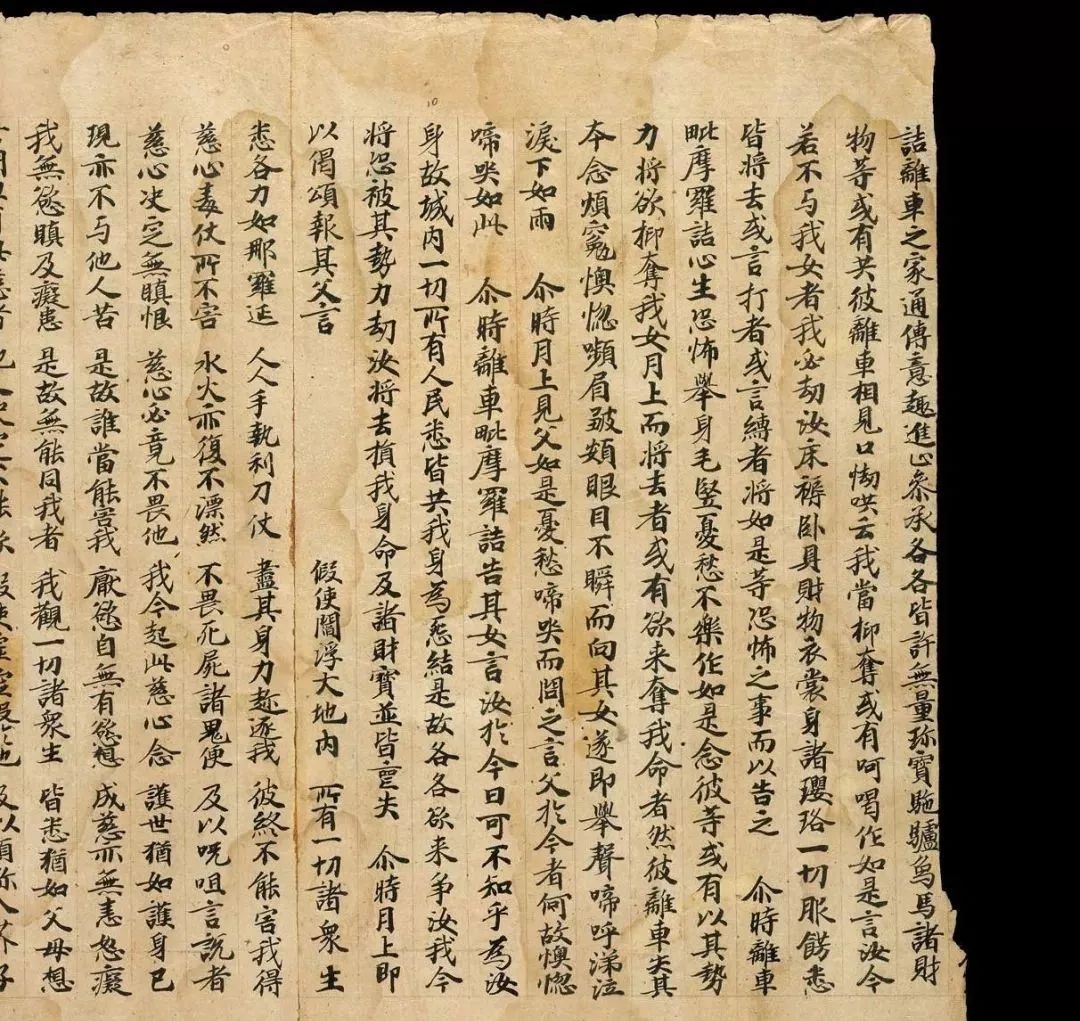 詰離車之家通傳意趣進心黍承各各皆許無量珎寶駞驢烏馬諸財
物等或有共彼離車相見口㤿唤云我當抑奪或有呵喝作如是言汝今
若不与我女者我必劫汝床褥卧具財物衣裳身諸瓔珞一切服餝悉
皆將去或言打者或言縛者將如是等恐怖之事而以告之 尒時離車
毗摩羅詰心生恐怖舉身毛竪憂愁不樂作如是念彼等或有以其勢
力將欲抑奪我女月上而將去者或有欲来奪我命者然彼離車失其
本念煩寃懊惚嚬眉皺頞眼目不瞬而向其女遂即舉聲啼呼涕泣
淚下如雨 尒時月上見父如是憂愁啼哭而問之言父於今者何故懊惚
啼哭如此 尒時離車毗摩羅詰告其女言汝於今日可不知乎為汝
身故城内一切所有人民悉皆共我身為惡結是故各各欲来争汝我今
將恐被其勢力劫汝將去損我身命及諸財寶並皆亡失 尒時月上即
以偈頌報其父言 假使閻浮大地内 所有一切諸衆生
悉各力如那羅延 人人手執利刀仗 盡其身力趂逐我 彼終不能害我得
慈心毒仗所不害 水火亦復不漂然 不畏死屍諸鬼便 及以呪咀言說者
慈心决定無瞋恨 慈心必竟不畏他 我今起此慈心念 護世猶如護身已
現亦不与他人苦 是故誰當能害我 厭慾自無有慾想 成慈亦無恚怒癡
我無慾瞋及癡恚 是故無能同我者 我觀一切諸衆生 皆悉猶如父母想